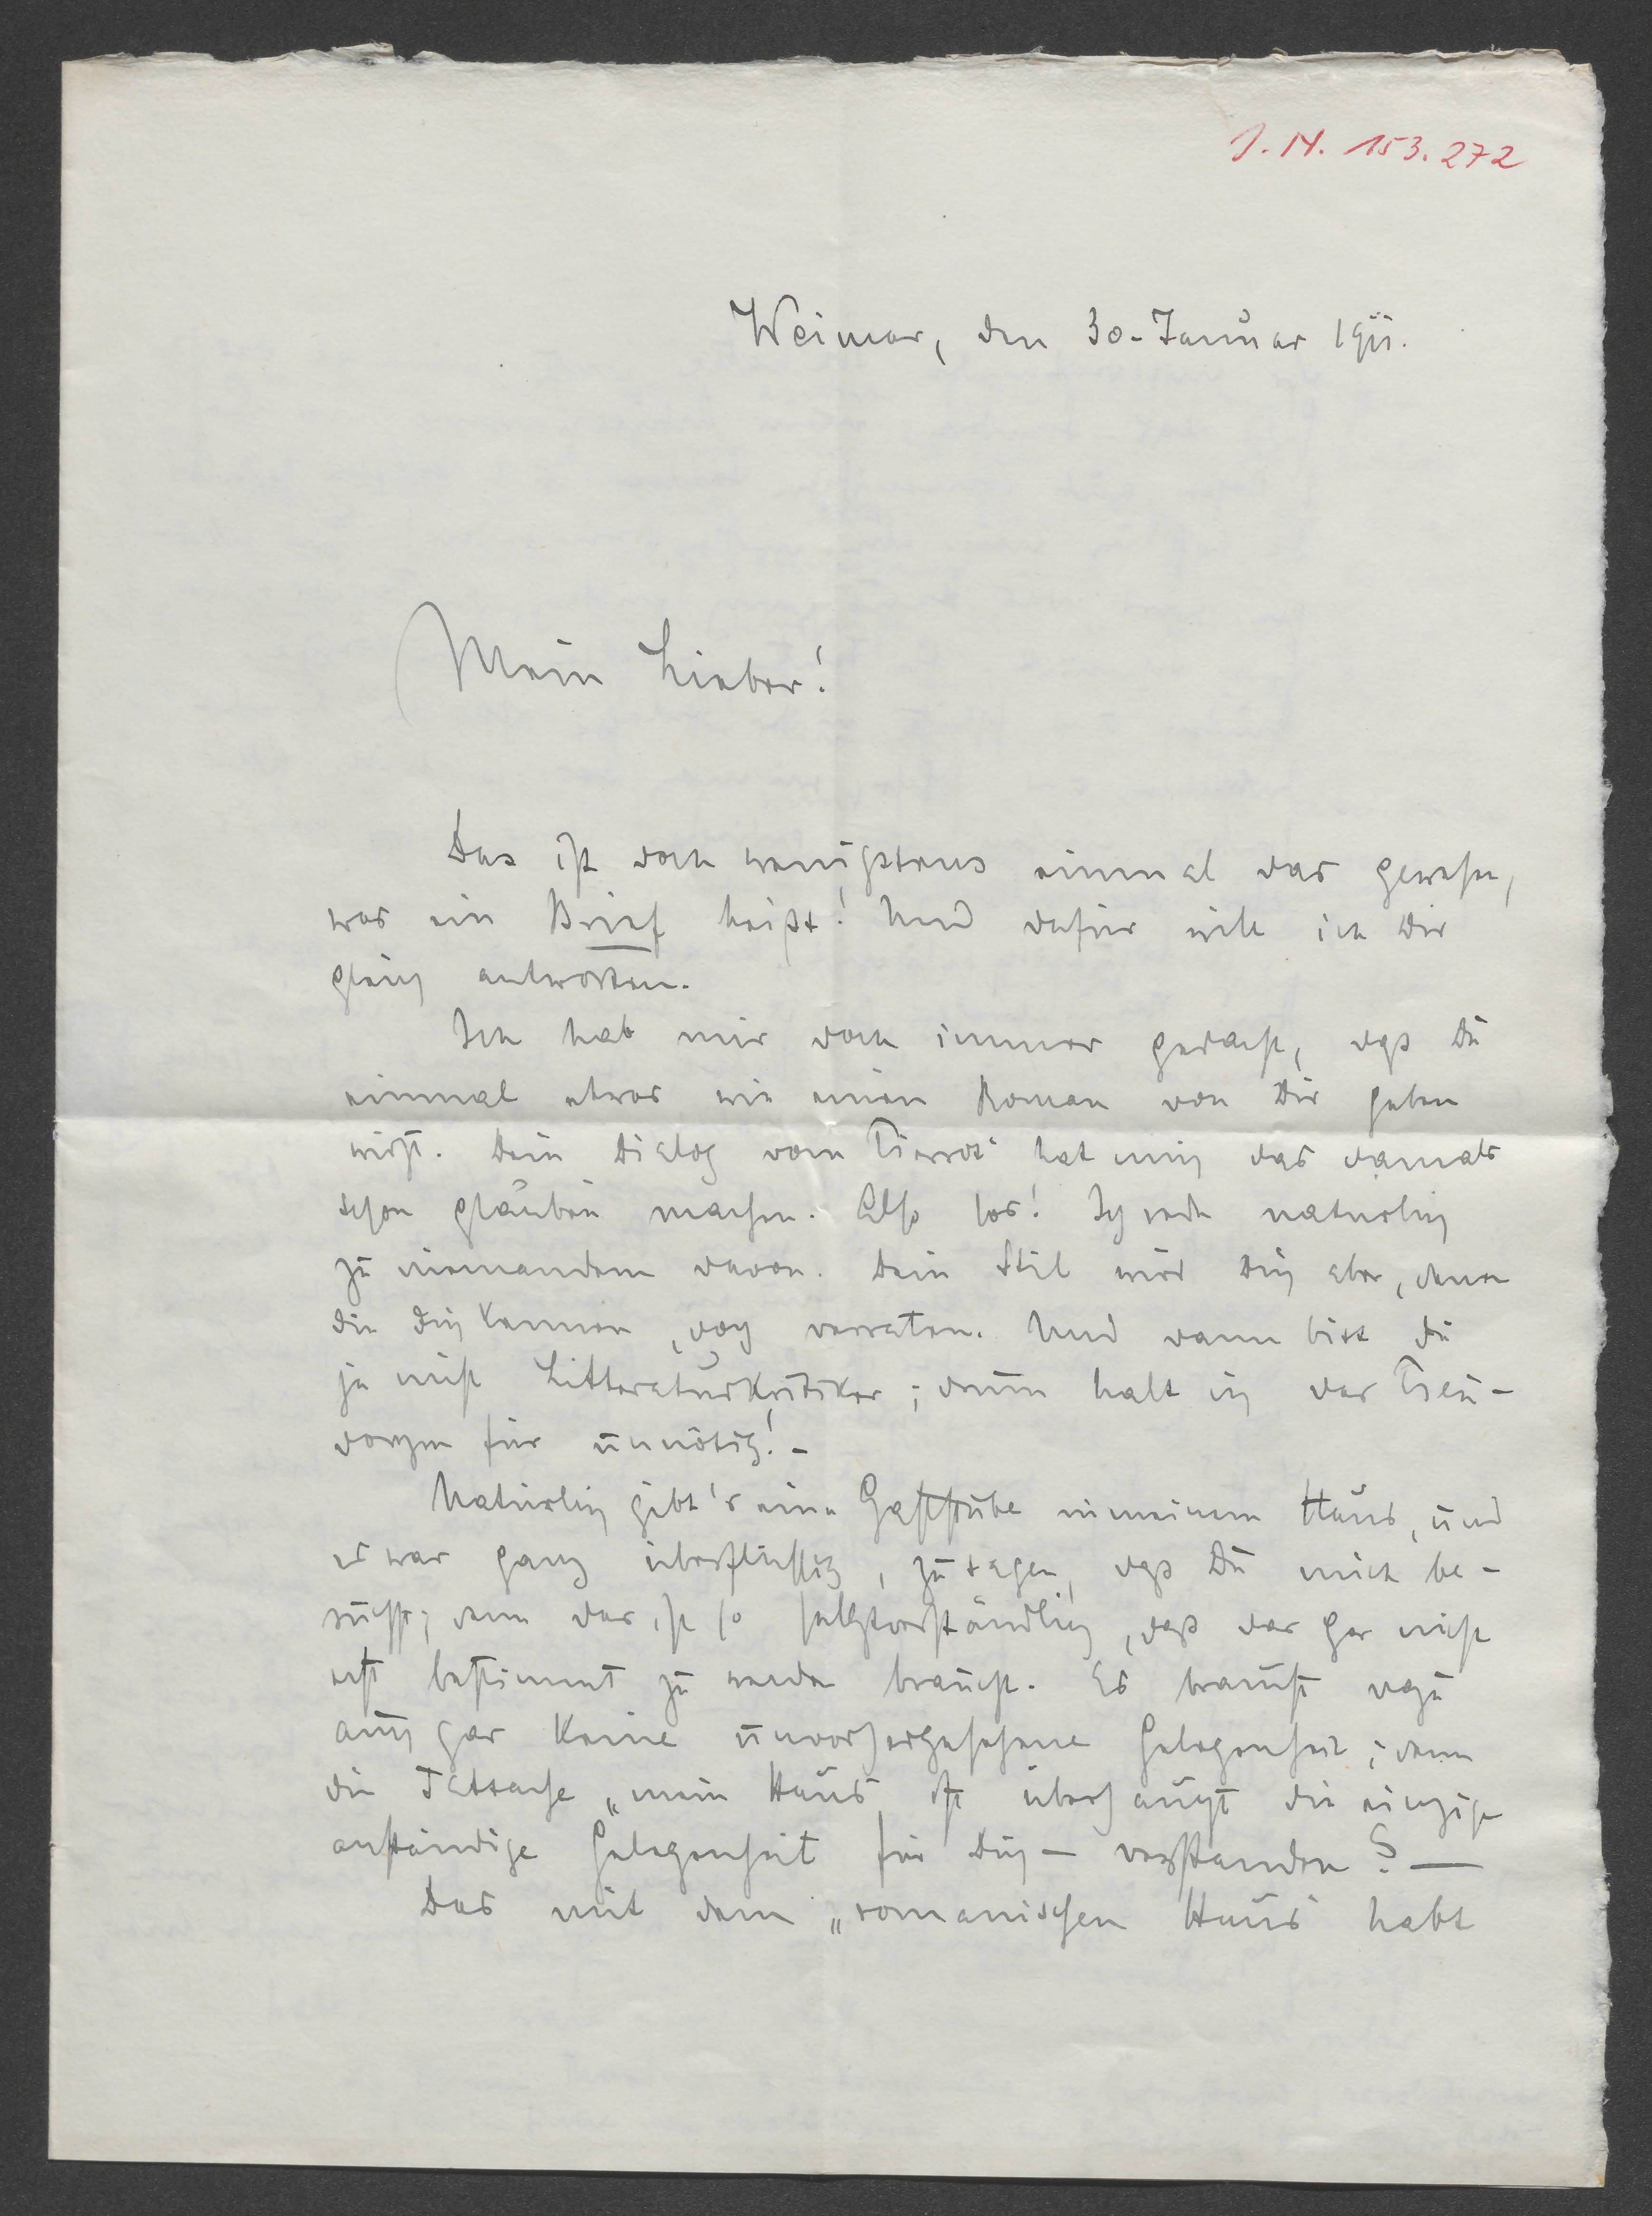 J. N. 153.272
Weimar, den 30. Januar 1911.
Mein Lieber!
Das ist doch wenigstens einmal das gewesen,
was ein Brief heißt! Und dafür will ich Dir
gleich antworten.
Ich hab mir doch immer gedacht, daß Du
einmal etwas wie einen Roman von Dir geben
wirst. Dein Dialog vom Pierrot hat mich das damals
schon glauben machen. Also los! Ich rede natürlich
zu niemandem davon. Dein Stil wird Dich aber, denen
die Dich kennen, doch verraten. Und dann bist Du
ja nicht Litteraturkritiker; drum halt ich das Pseu-
donym für unnötig! -
Natürlich gibt's eine Gaststube in meinem Haus, und
es war ganz überflüssig, zu sagen, daß Du mich be-
suchst; denn das ist so selbstverständlich, daß das gar nicht
erst bestimmt zu werden braucht. Es braucht dazu
auch gar keine unvorhergesehene Gelegenheit; denn
die Tatsache „mein Haus" ist überhaupt die einzige
anständige Gelegenheit für Dich — verstanden? —
Das mit dem „romanischen Haus" habt